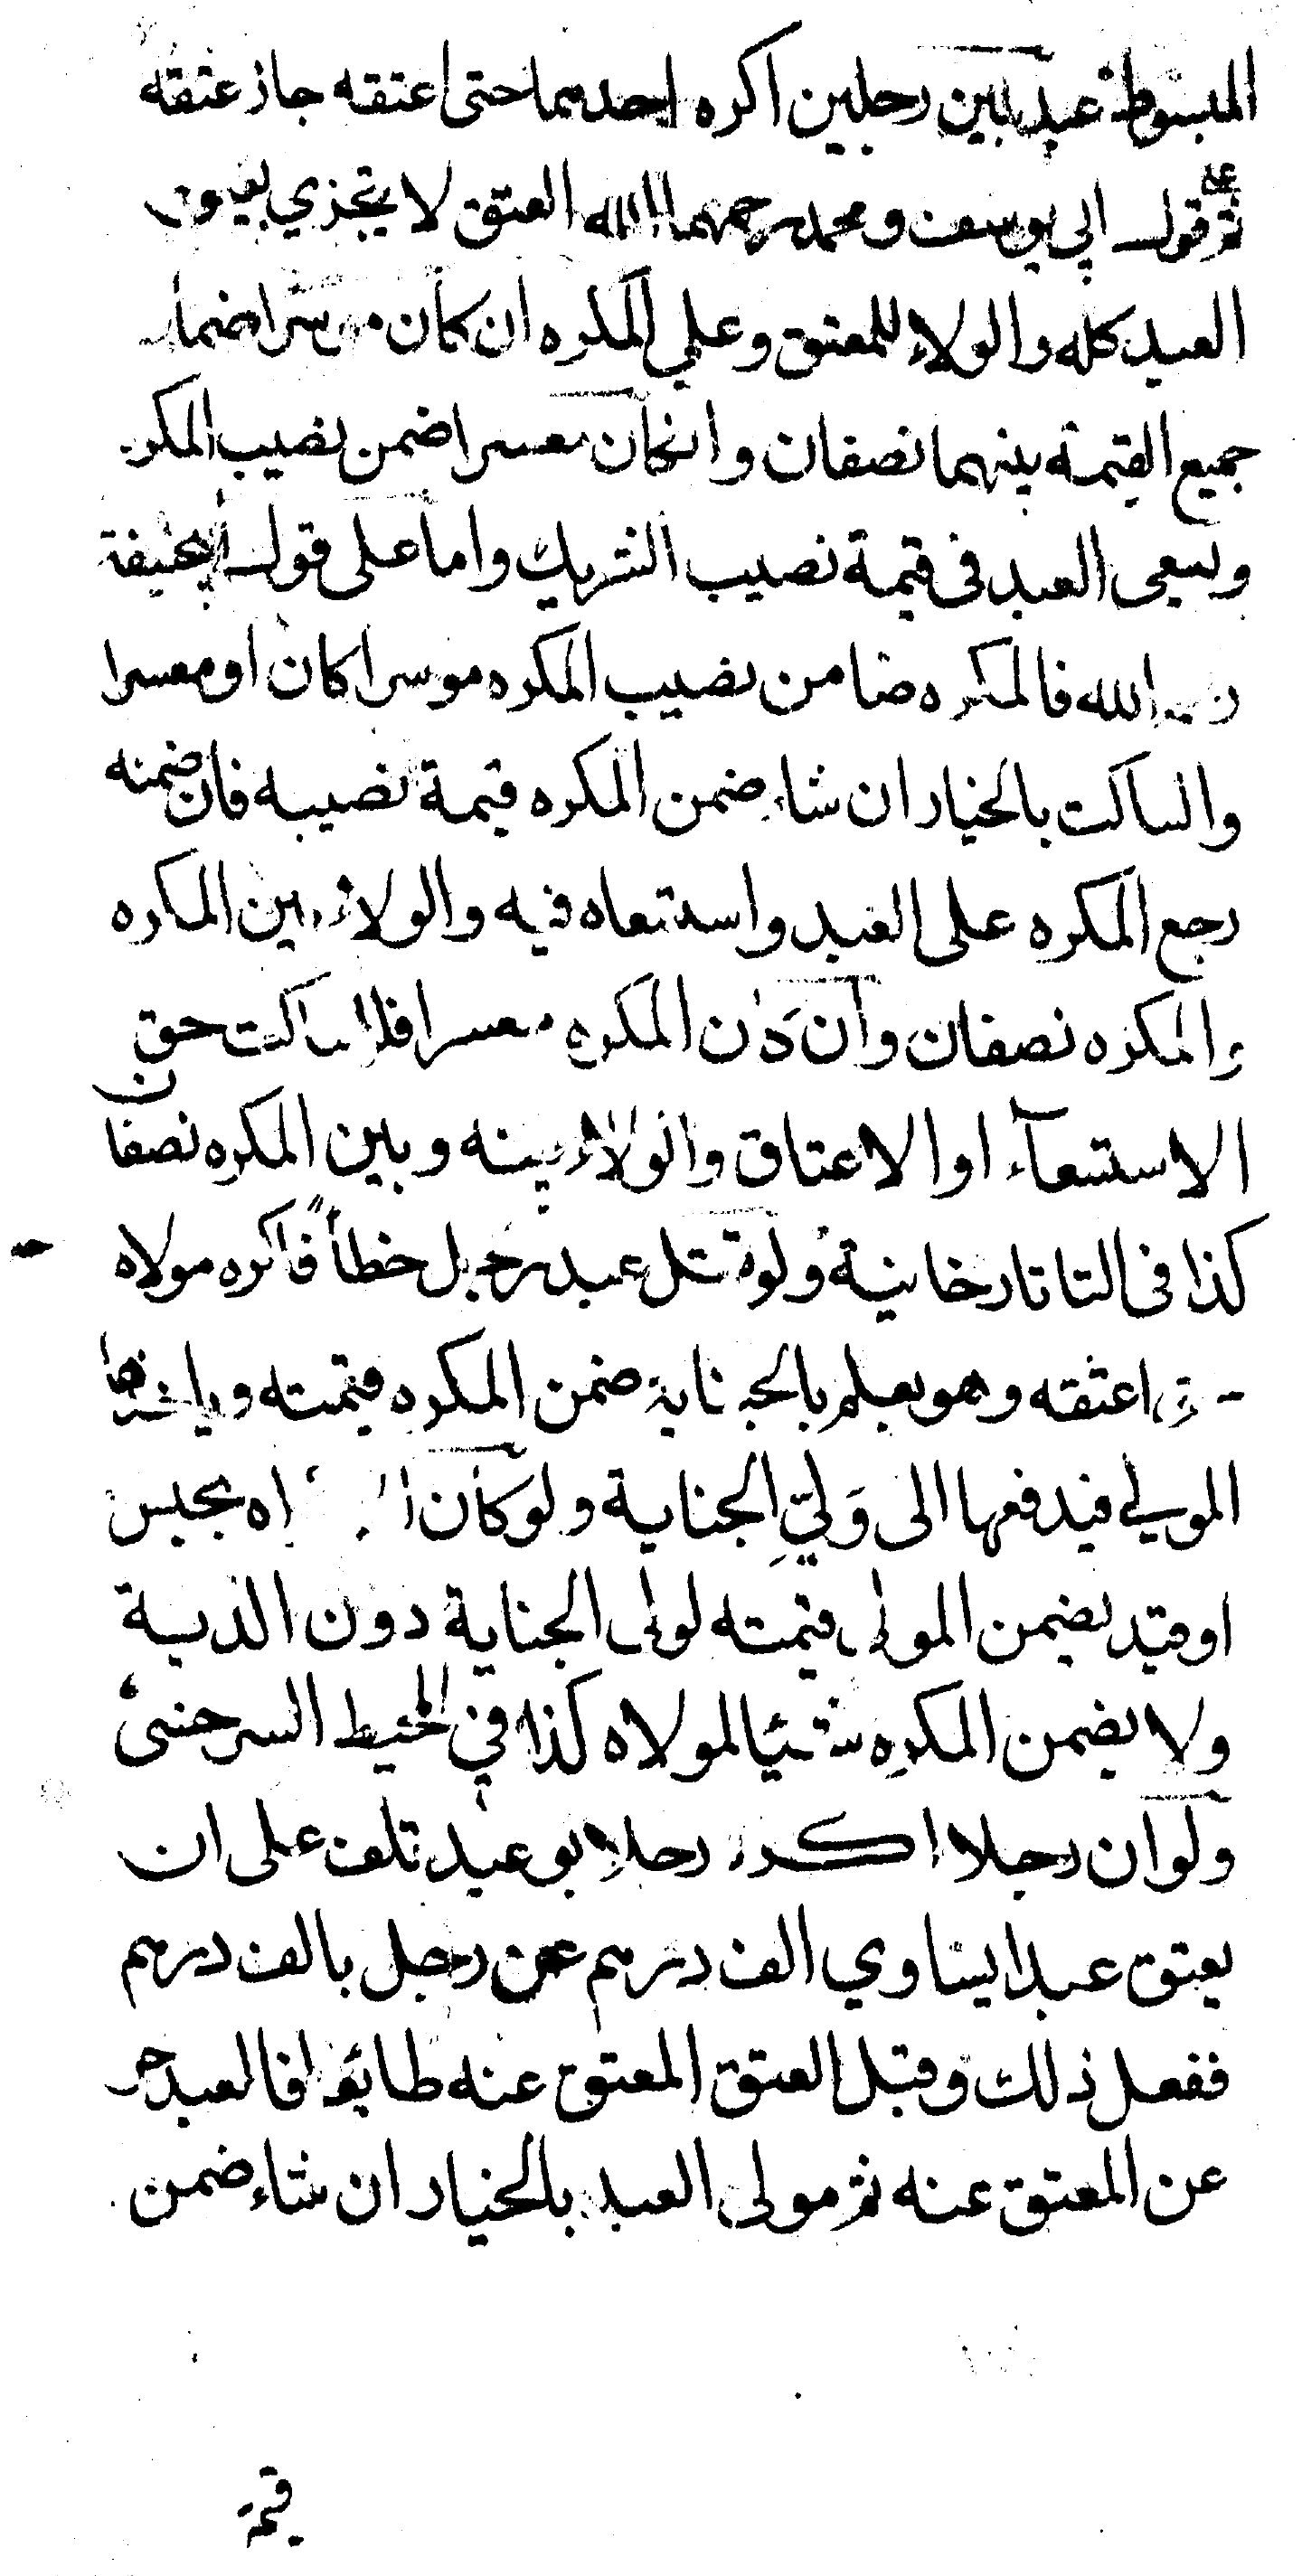 المبسوط عبد بين رجلين اكره احدهما حتى اعتقه جاز عتقه
ثم على قول ابي يوسف ومحمد رحمهما الله العتق لا يتجزي
العبد كله والولاء للمعتق وعلي المكره ان كان موسرا ضمان
جميع القيمة بينهما نصفان وانكان معسرا ضمن نصيب المكره
ويسعى العبد في قيمة نصيب الشريك واما على قول ابيحنيفة
رحمه الله فالمكره ضامن نصيب المكره موسرا كان او معسرا
والساكت بالخيار ان شاء ضمن المكره قيمة نصيبه فان ضمنه
رجع المكره على العبد واستسعاه فيه والولاء بين المكره
والمكره نصفان وان كان المكره معسرا فللساكت حق
الاستسعآء او الاعتاق والولاء بينه وبين المكره نصفان
كذا في التاتارخانية ولو قتل عبد رجل خطأً فاكره مولاه
حتى اعتقه وهو يعلم بالجناية ضمن المكره قيمته وياخذها
المولي فيدفعها الى وَليِّ الجناية ولو كان بحبس
او قيد يضمن المولى قيمته لولى الجناية دون الدية
ولا يضمن المكرِه شيئا لمولاه كذا في المحيط السرخسى
ولو ان رجلا اكره رجلا بوعيد تلف على ان
يعتق عبدا يساوي الف درهم عن رجل بالف درهم
ففعل ذلك وقبل العتق المعتق عنه طائعا فالعبد حر
عن المعتق عنه ثم مولى العبد بالخيار ان شاء ضمن
قيمة